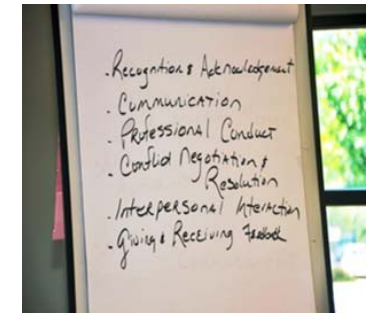 . Recognition & Acknowledgement
. Communication
. Professional Conduct
. Conflict Negotiation &
Resolution
. Interpersonal Interaction
. Giving & Receiving Feedback